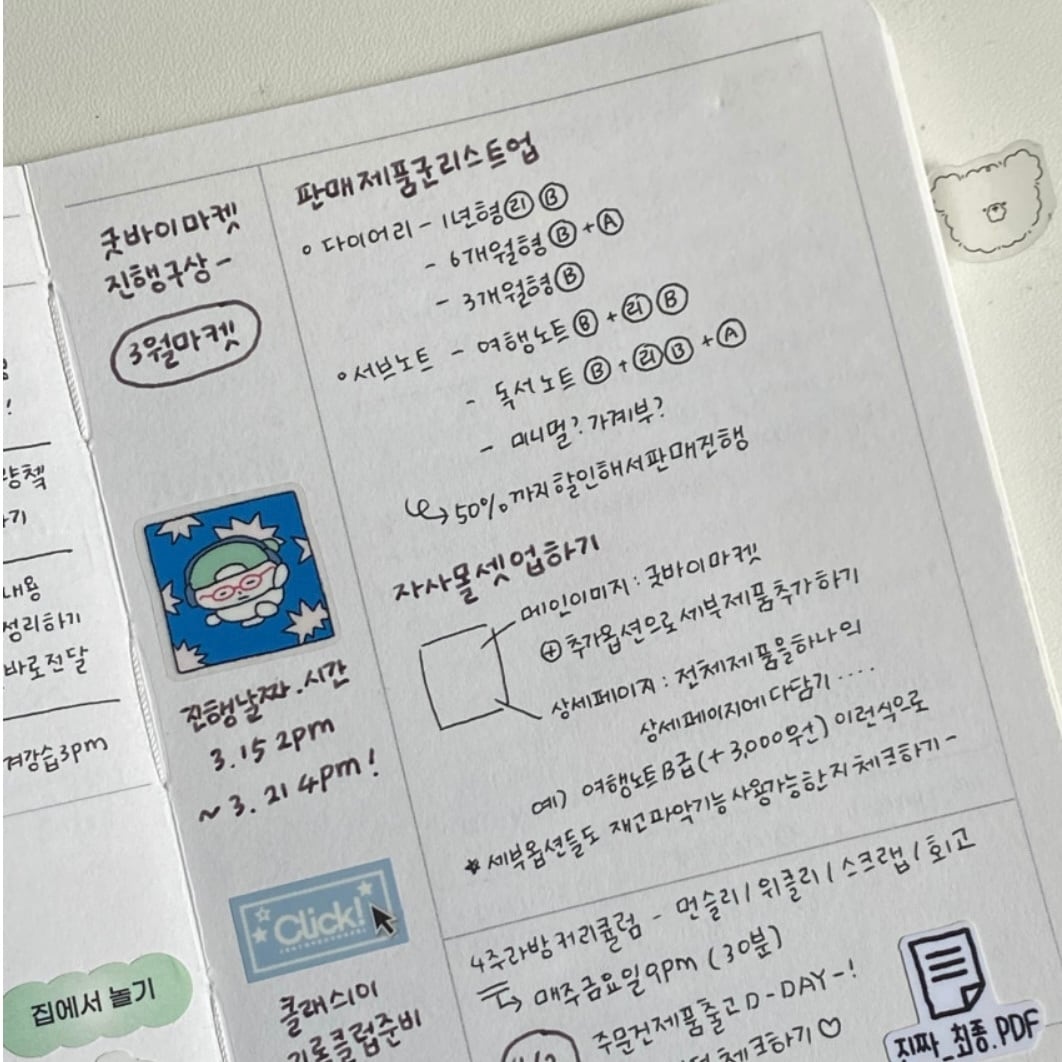 !
양첵
기
내용
정리하기
바로전달
겨강습3pm
집에서 놀기
굿바이마켓
진행구상-
3월마켓
진행날짜.시간
3.15 2pm
~3.21 4pm!
Click!
클래스101
기록클럽준비
판매제품군리스트업
다이어리 - 1년형 ㉣ Ⓑ
- 6개월형 Ⓑ + Ⓐ
- 3개월형 Ⓑ
서브노트 - 여행노트 Ⓑ + 리 Ⓑ
- 독서노트 Ⓑ + 리 Ⓑ + Ⓐ
- 미니멀? 가계부?
50%까지 할인해서판매진행
자사몰셋업하기
메인이미지: 굿바이마켓
⊕ 추가옵션으로 세부제품추가하기
상세페이지: 전체제품을하나의
상세페이지에 다담기....
예) 여행노트B급(+3,000원) 이런식으로
* 세부옵션들도 재고파악기능 사용가능한지 체크하기-
4주라방커리큘럼 - 먼슬리/위클리/스크랩/회고
매주금요일9pm (30분)
주문건제품출고 D-DAY-!
체크하기♡
지짜_최종.PDF